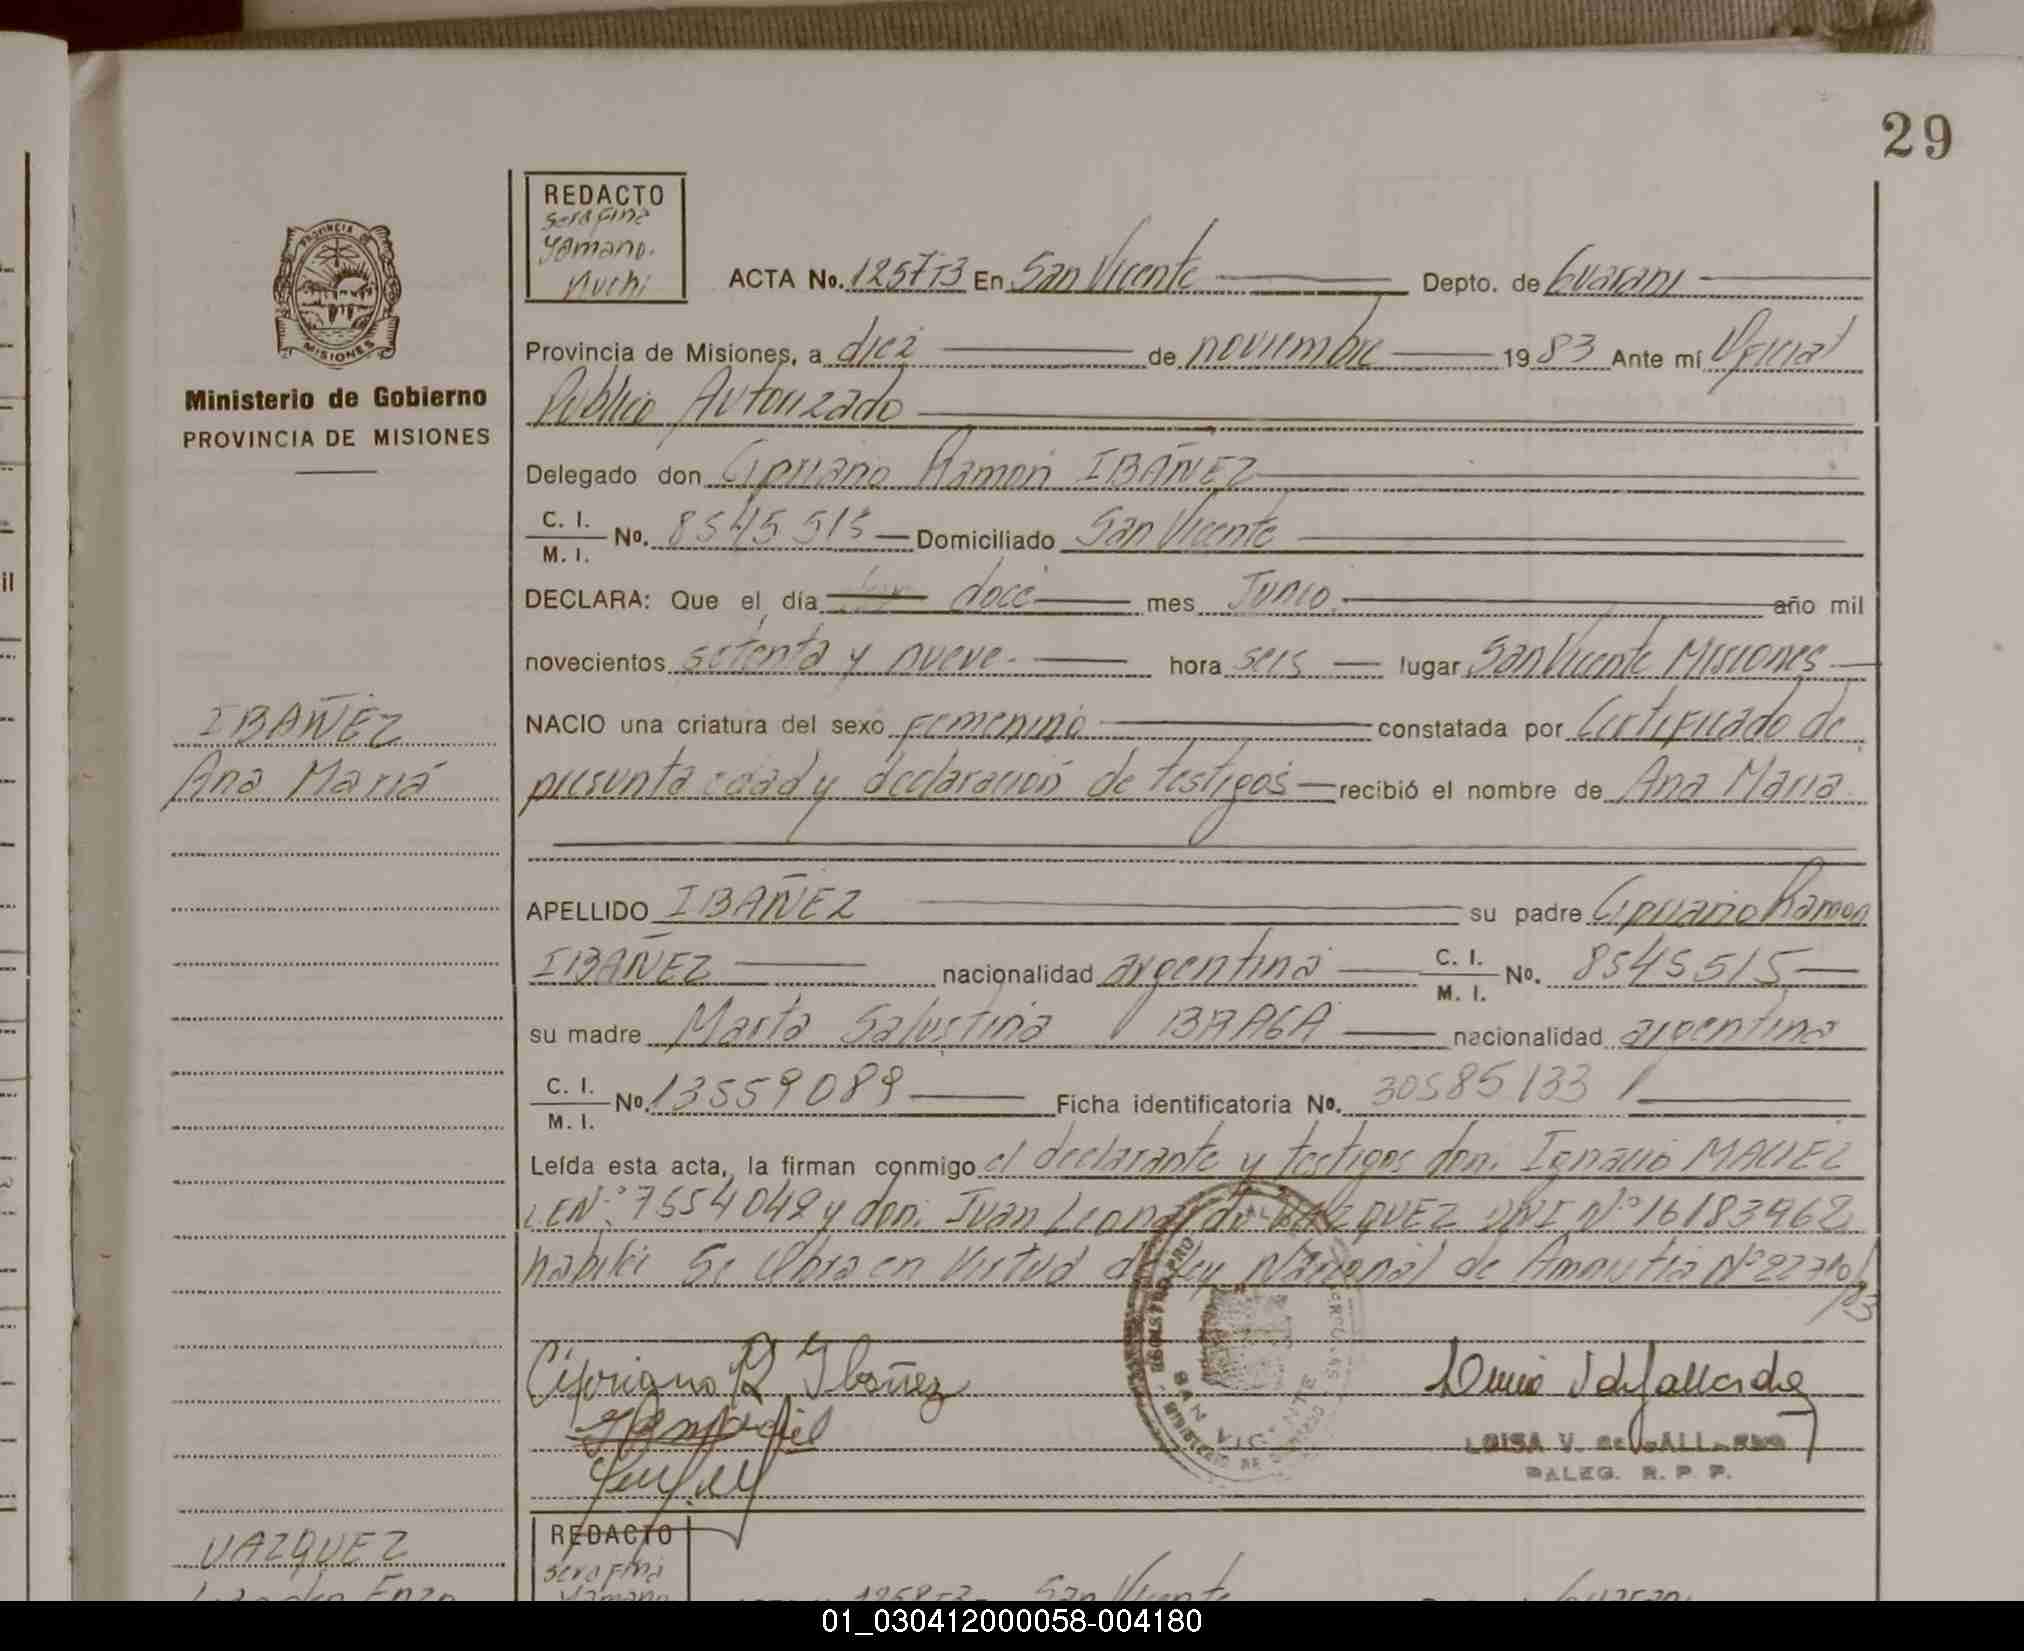 29
REDACTO
Serafina
Yamano.
Nuchi
PROVINCIA DE
MISIONES
Ministerio de Gobierno
PROVINCIA DE MISIONES
ACTA No. 1257T3 En San Vicente Depto. de Guarani
Provincia de Misiones, a diez de noviembre 1983 Ante mí Oficial
Publico Autorizado
Delegado don Cipriano Ramon IBAÑEZ
C. I. / M. I. No. 8545515 Domiciliado San Vicente
DECLARA: Que el día doce mes Junio año mil
novecientos setenta y nueve. hora seis lugar San Vicente Misiones
IBAÑEZ
Ana Mariá
NACIO una criatura del sexo femenino constatada por Certificado de
presunta edad y declaración de testigos recibió el nombre de Ana Maria
APELLIDO IBAÑEZ su padre Cipriano Ramon
IBAÑEZ nacionalidad argentina C. I. / M. I. No. 8545515
su madre Marta Salustina BRAGA nacionalidad argentina
C. I. / M. I. No. 13559089 Ficha identificatoria No. 30585133
Leída esta acta, la firman conmigo el declarante y testigos don: Ignacio MACIEL
LE Nº: 7654042 y don: Juan Leonardo VAZQUEZ DNI Nº 16183962
habiles Se labra en Virtud de Ley Nacional de Amnistia Nº 22710/
83
Cipriano R Ibañez
SAN VICENTE
LUISA V. de GALLARDO
DALEG. R. P. P.
VAZQUEZ
Enzo
REDACTO
Serafina
Yamano
1258T3 San Vicente Guarani
01_030412000058-004180